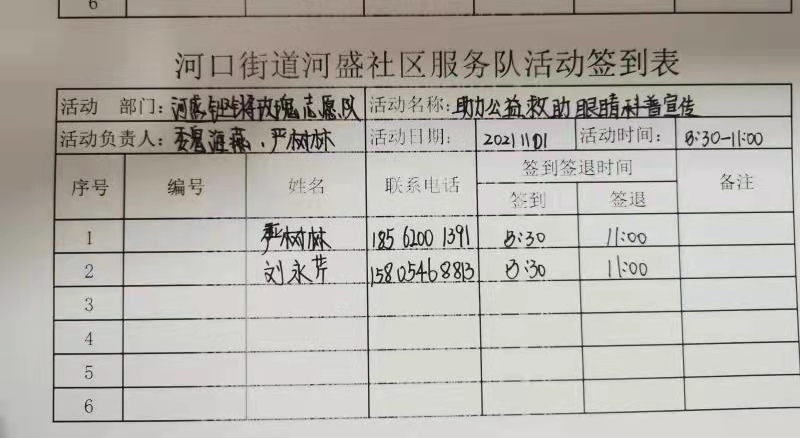 6
河口街道河盛社区服务队活动签到表
活动 部门：河盛铿锵玫瑰志愿队 活动名称：助力公益救助眼睛科普宣传
活动负责人：魏海燕、严树林 活动日期：20211101 活动时间：8:30-11:00
序号 编号 姓名 联系电话 签到签退时间 备注
签到 签退
1 严树林 185 6200 1391 8:30 11:00
2 刘永芹 15805468813 8:30 11:00
3
4
5
6